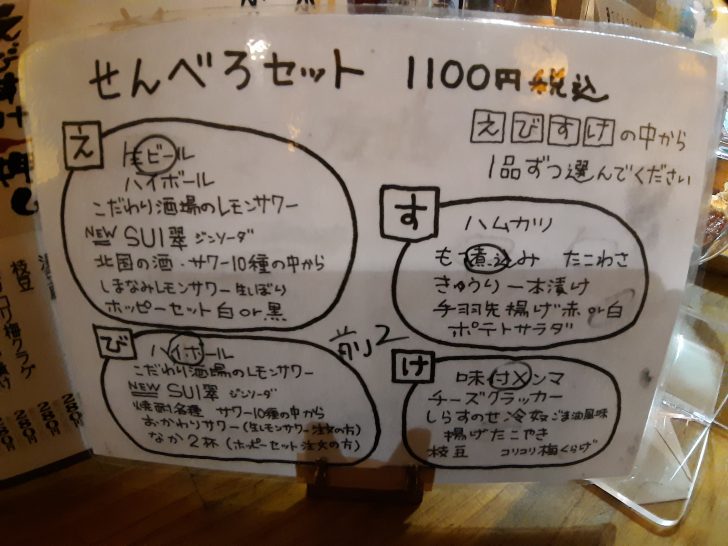 せんべろセット 1100円税込
えびすけの中から
1品ずつ選んでください
え
生ビール
ハイボール
こだわり酒場のレモンサワー
NEW SUI翠 ジンソーダ
北国の酒・サワー10種の中から
しまなみレモンサワー生しぼり
ホッピーセット白or黒
び
ハイボール
こだわり酒場のレモンサワー
NEW SUI翠 ジンソーダ
焼酎各種 サワー10種の中から
おかわりサワー(生レモンサワー注文の方)
なか2杯(ホッピーセット注文の方)
前2
す
ハムカツ
もつ煮込み たこわさ
きゅうり一本漬け
手羽先揚げ赤or白
ポテトサラダ
け
味付メンマ
チーズクラッカー
しらすのせ冷奴ごま油風味
揚げたこやき
枝豆 コリコリ梅くらげ
枝豆
梅クラゲ
280円
280円
280円